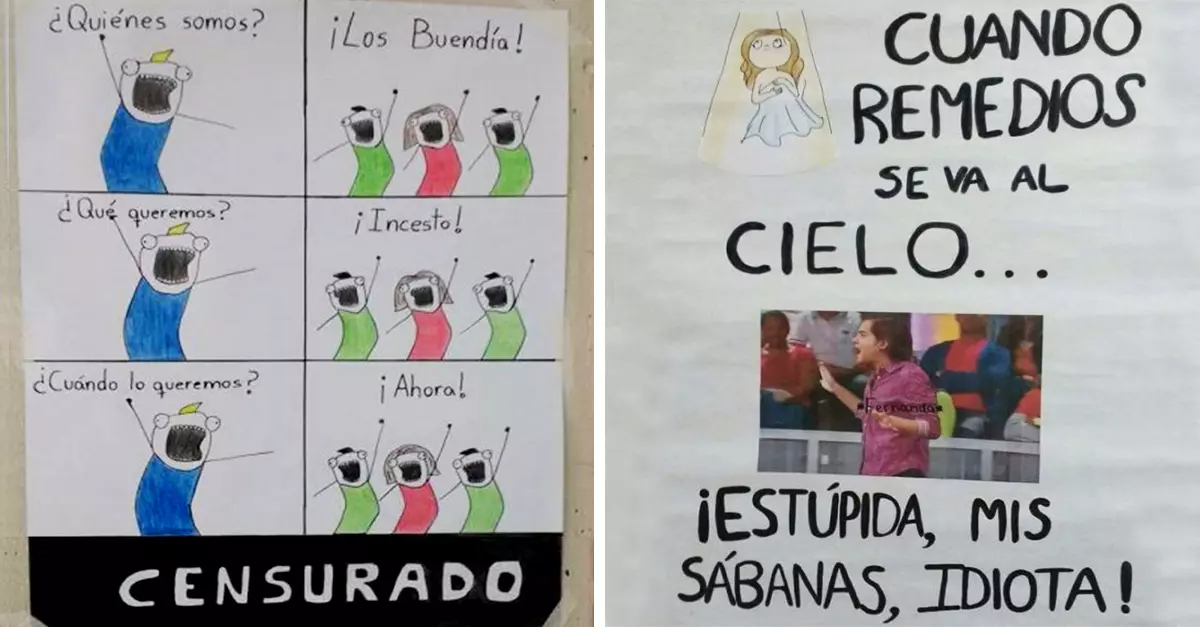 ¿Quiénes somos?
¡Los Buendía!
¿Qué queremos?
¡Incesto!
¿Cuándo lo queremos?
¡Ahora!
CENSURADO
CUANDO
REMEDIOS
SE VA AL
CIELO...
*Fernanda*
¡ESTÚPIDA, MIS
SÁBANAS, IDIOTA!